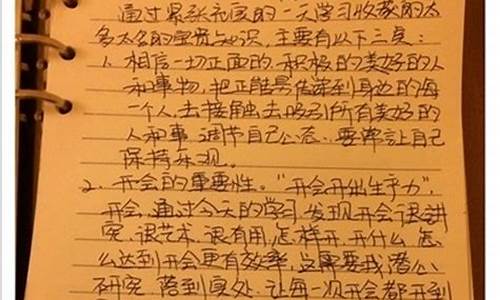 通过紧张充实的一天学习收获的太
多太多的宝贵知识，主要有以下三点：
1、相信一切正面的、积极的美好的人
和事物，把正能量传递到身边的每
一个人，去接触去吸引所有美好的
人和事，调节自己心态，要弹让自己
保持乐观。
2、开会的重要性。“开会开出生产力”，
开会，通过今天的学习，发现开会很讲
究，很艺术，很有用，怎样开，开什么，怎
么达到开会更有效率，这需要我潜心
研究，落到实处，让每一次开会都开到